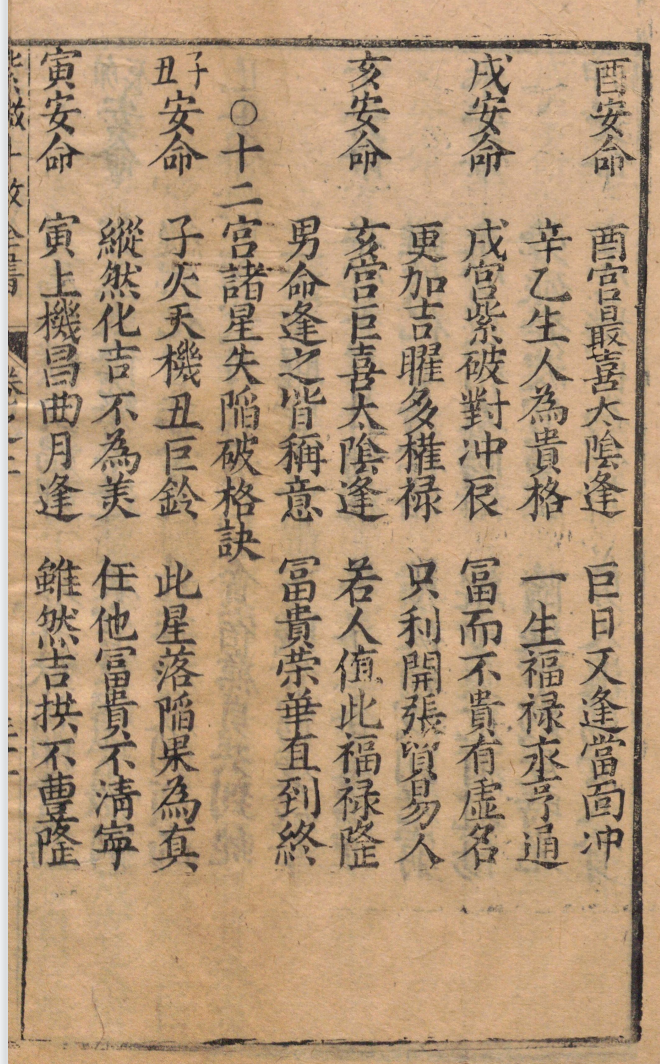 酉安命　酉宮最喜太陰逢　巨日又逢當面冲
辛乙生人為貴格　一生福禄永亨通
戌安命　戌宮紫破對冲辰　冨而不貴有虛名
更加吉曜多權禄　只利開張貿易人
亥安命　亥宮巨喜太陰逢　若人值此福禄隆
男命逢之皆稱意　冨貴荣華直到終
○十二宮諸星失陥破格訣
子丑安命　子火天機丑巨鈴　此星落陥果為真
縱然化吉不為美　任他冨貴不清寧
寅安命　寅上機昌曲月逢　雖然吉拱不豊隆
紫微斗数全書　卷之